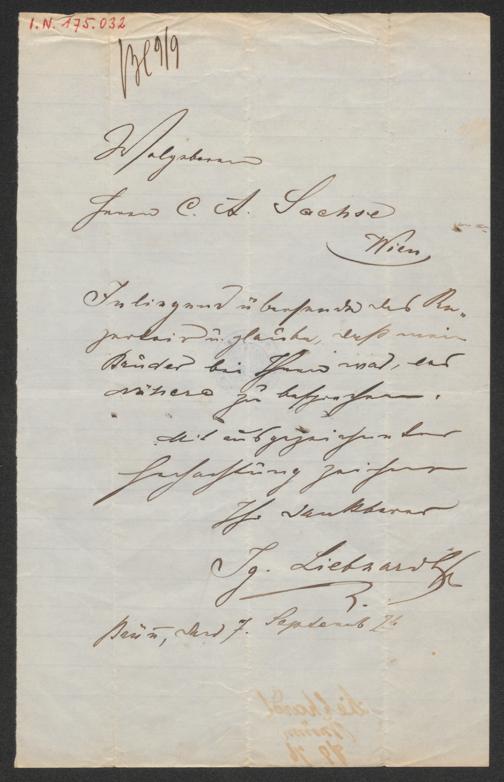 I.N. 175.032
9/9
Wolgeboren
Herrn C. A. Sachse
Wien
Inliegend übersende das Re-
pertoir u. glaube, daß mein
Bruder bei Ihnen war, das
nähere zu besprechen.
Mit ausgezeichneter
Hochachtung zeichne
Ihr dankbarer
Ig. Liebhardt
Brünn, den 7. September 76